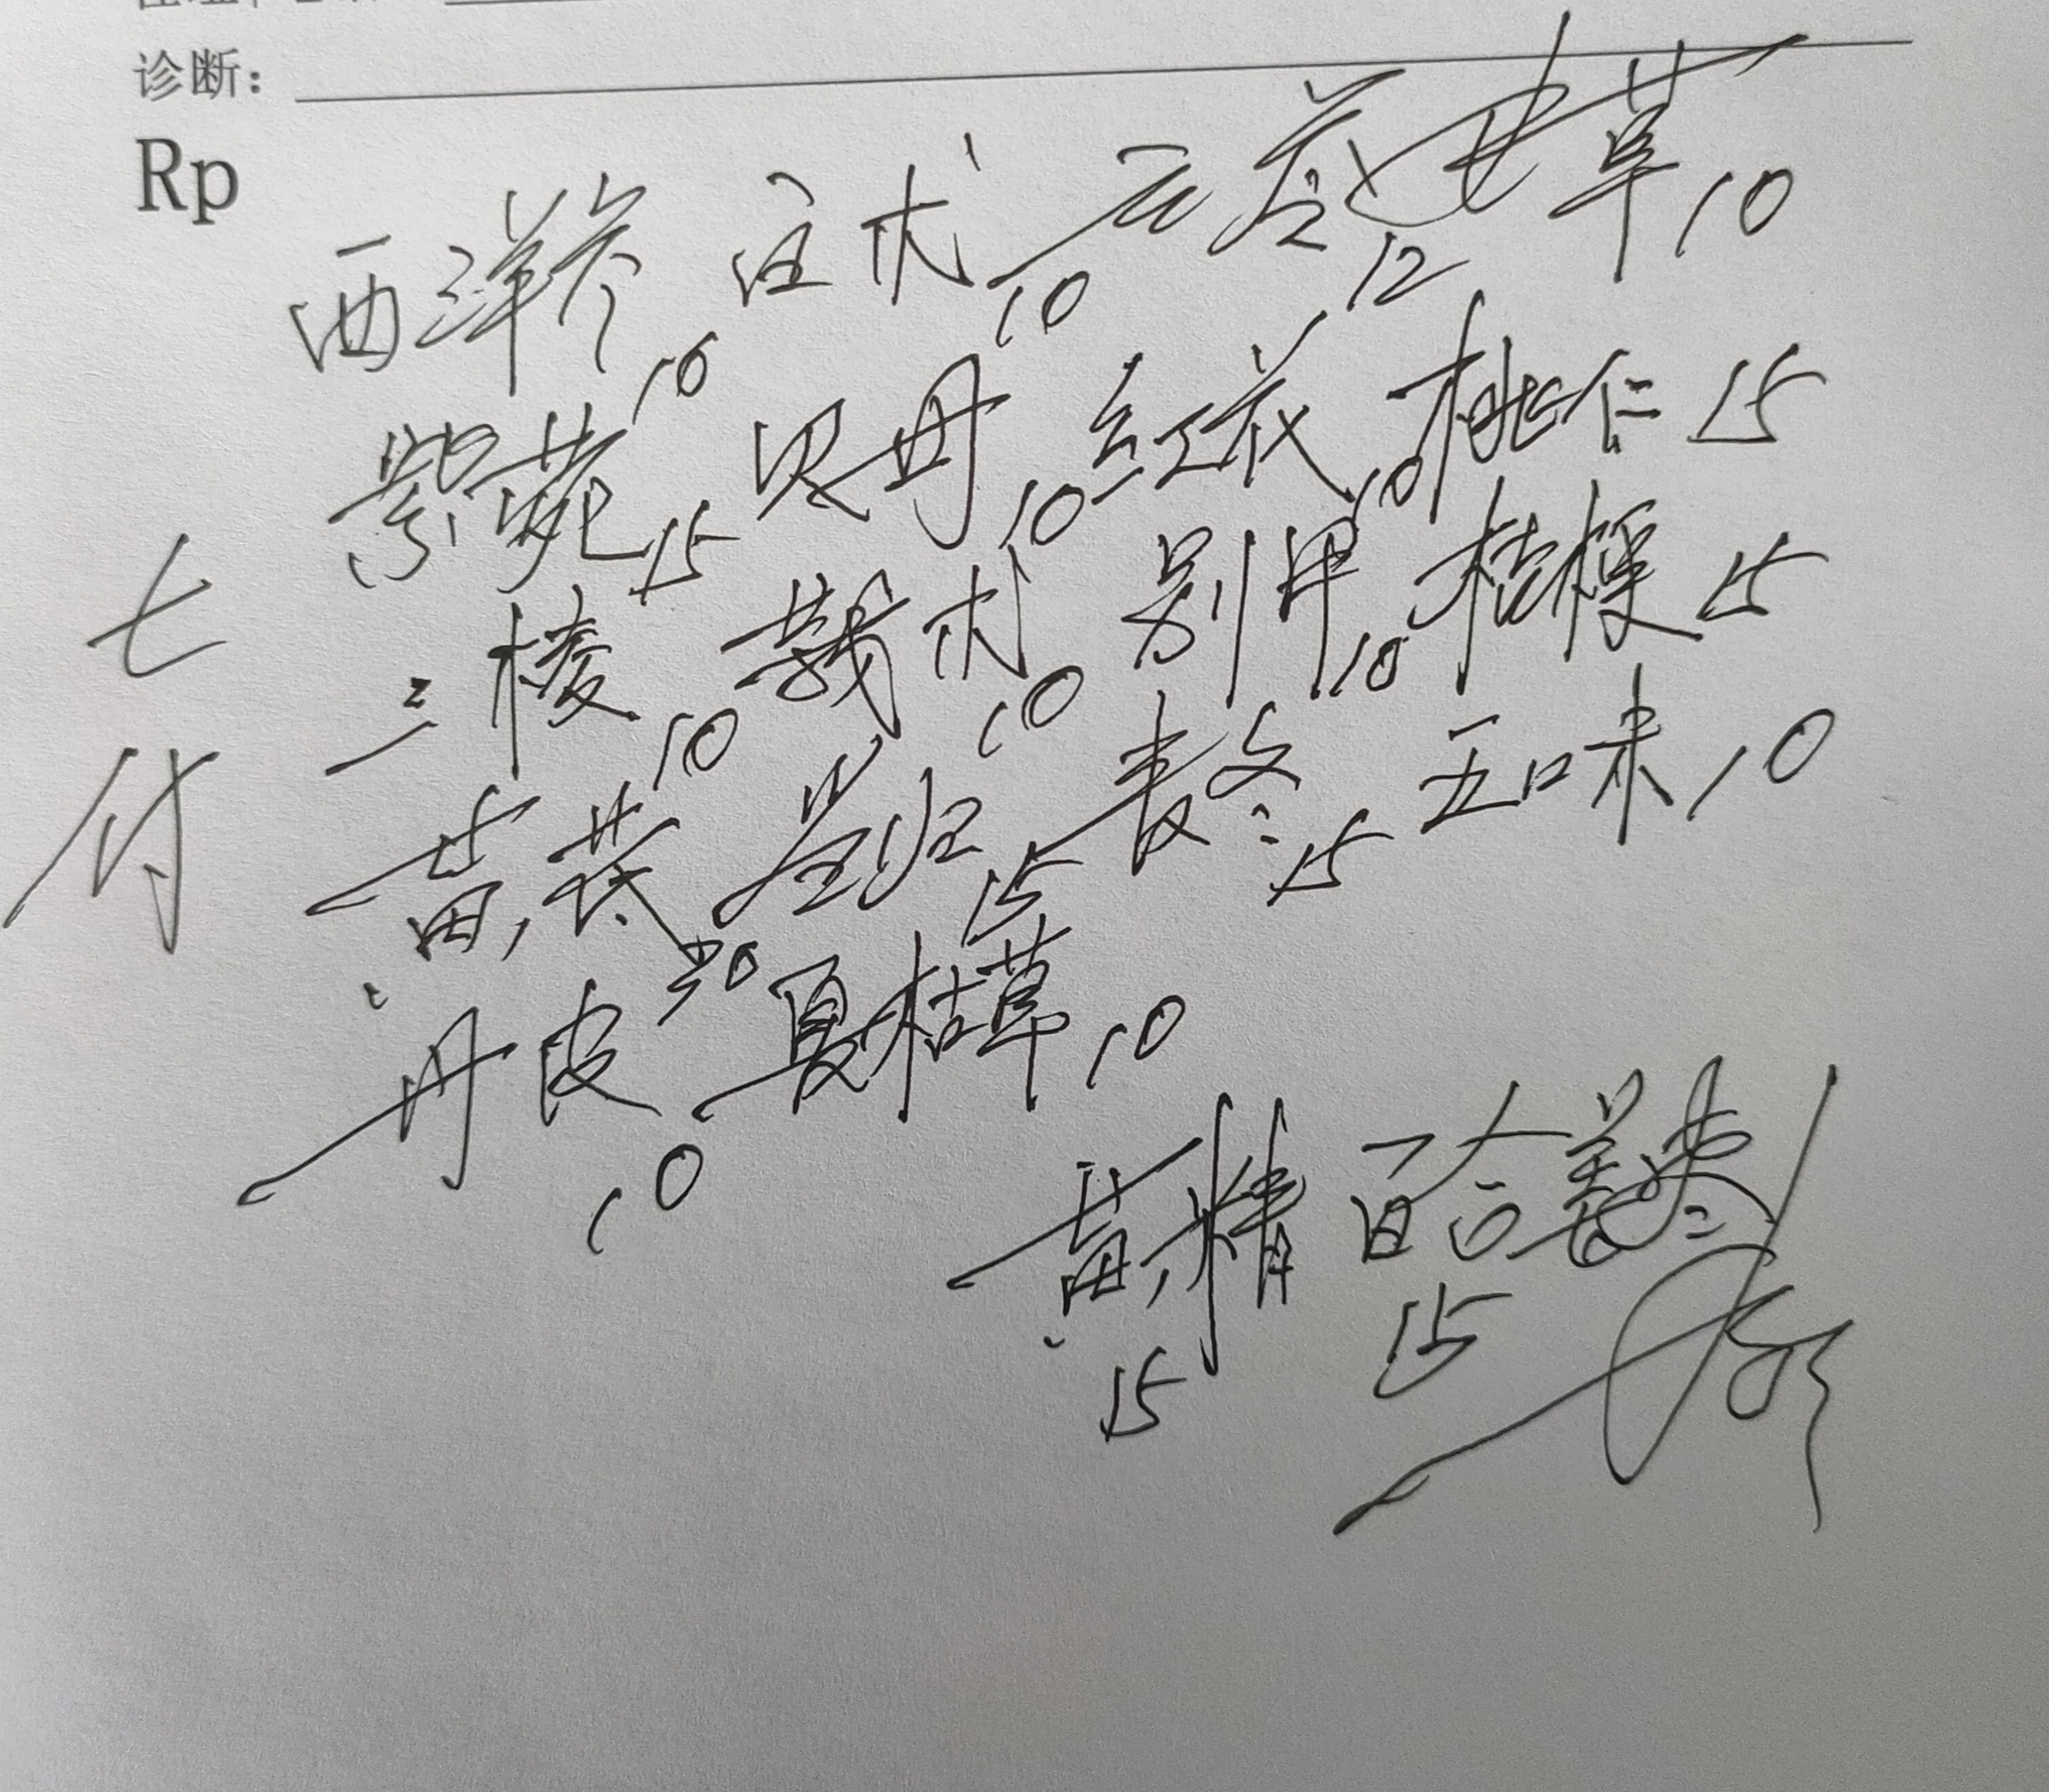 诊断：
Rp
西洋参10 白术10 云苓12 甘草10
紫菀15 贝母10 红花10 桃仁15
三棱10 莪术10 别甲10 桔梗15
黄芪30 当归15 麦冬15 五味10
丹皮10 夏枯草10
黄精15 百合15
七付